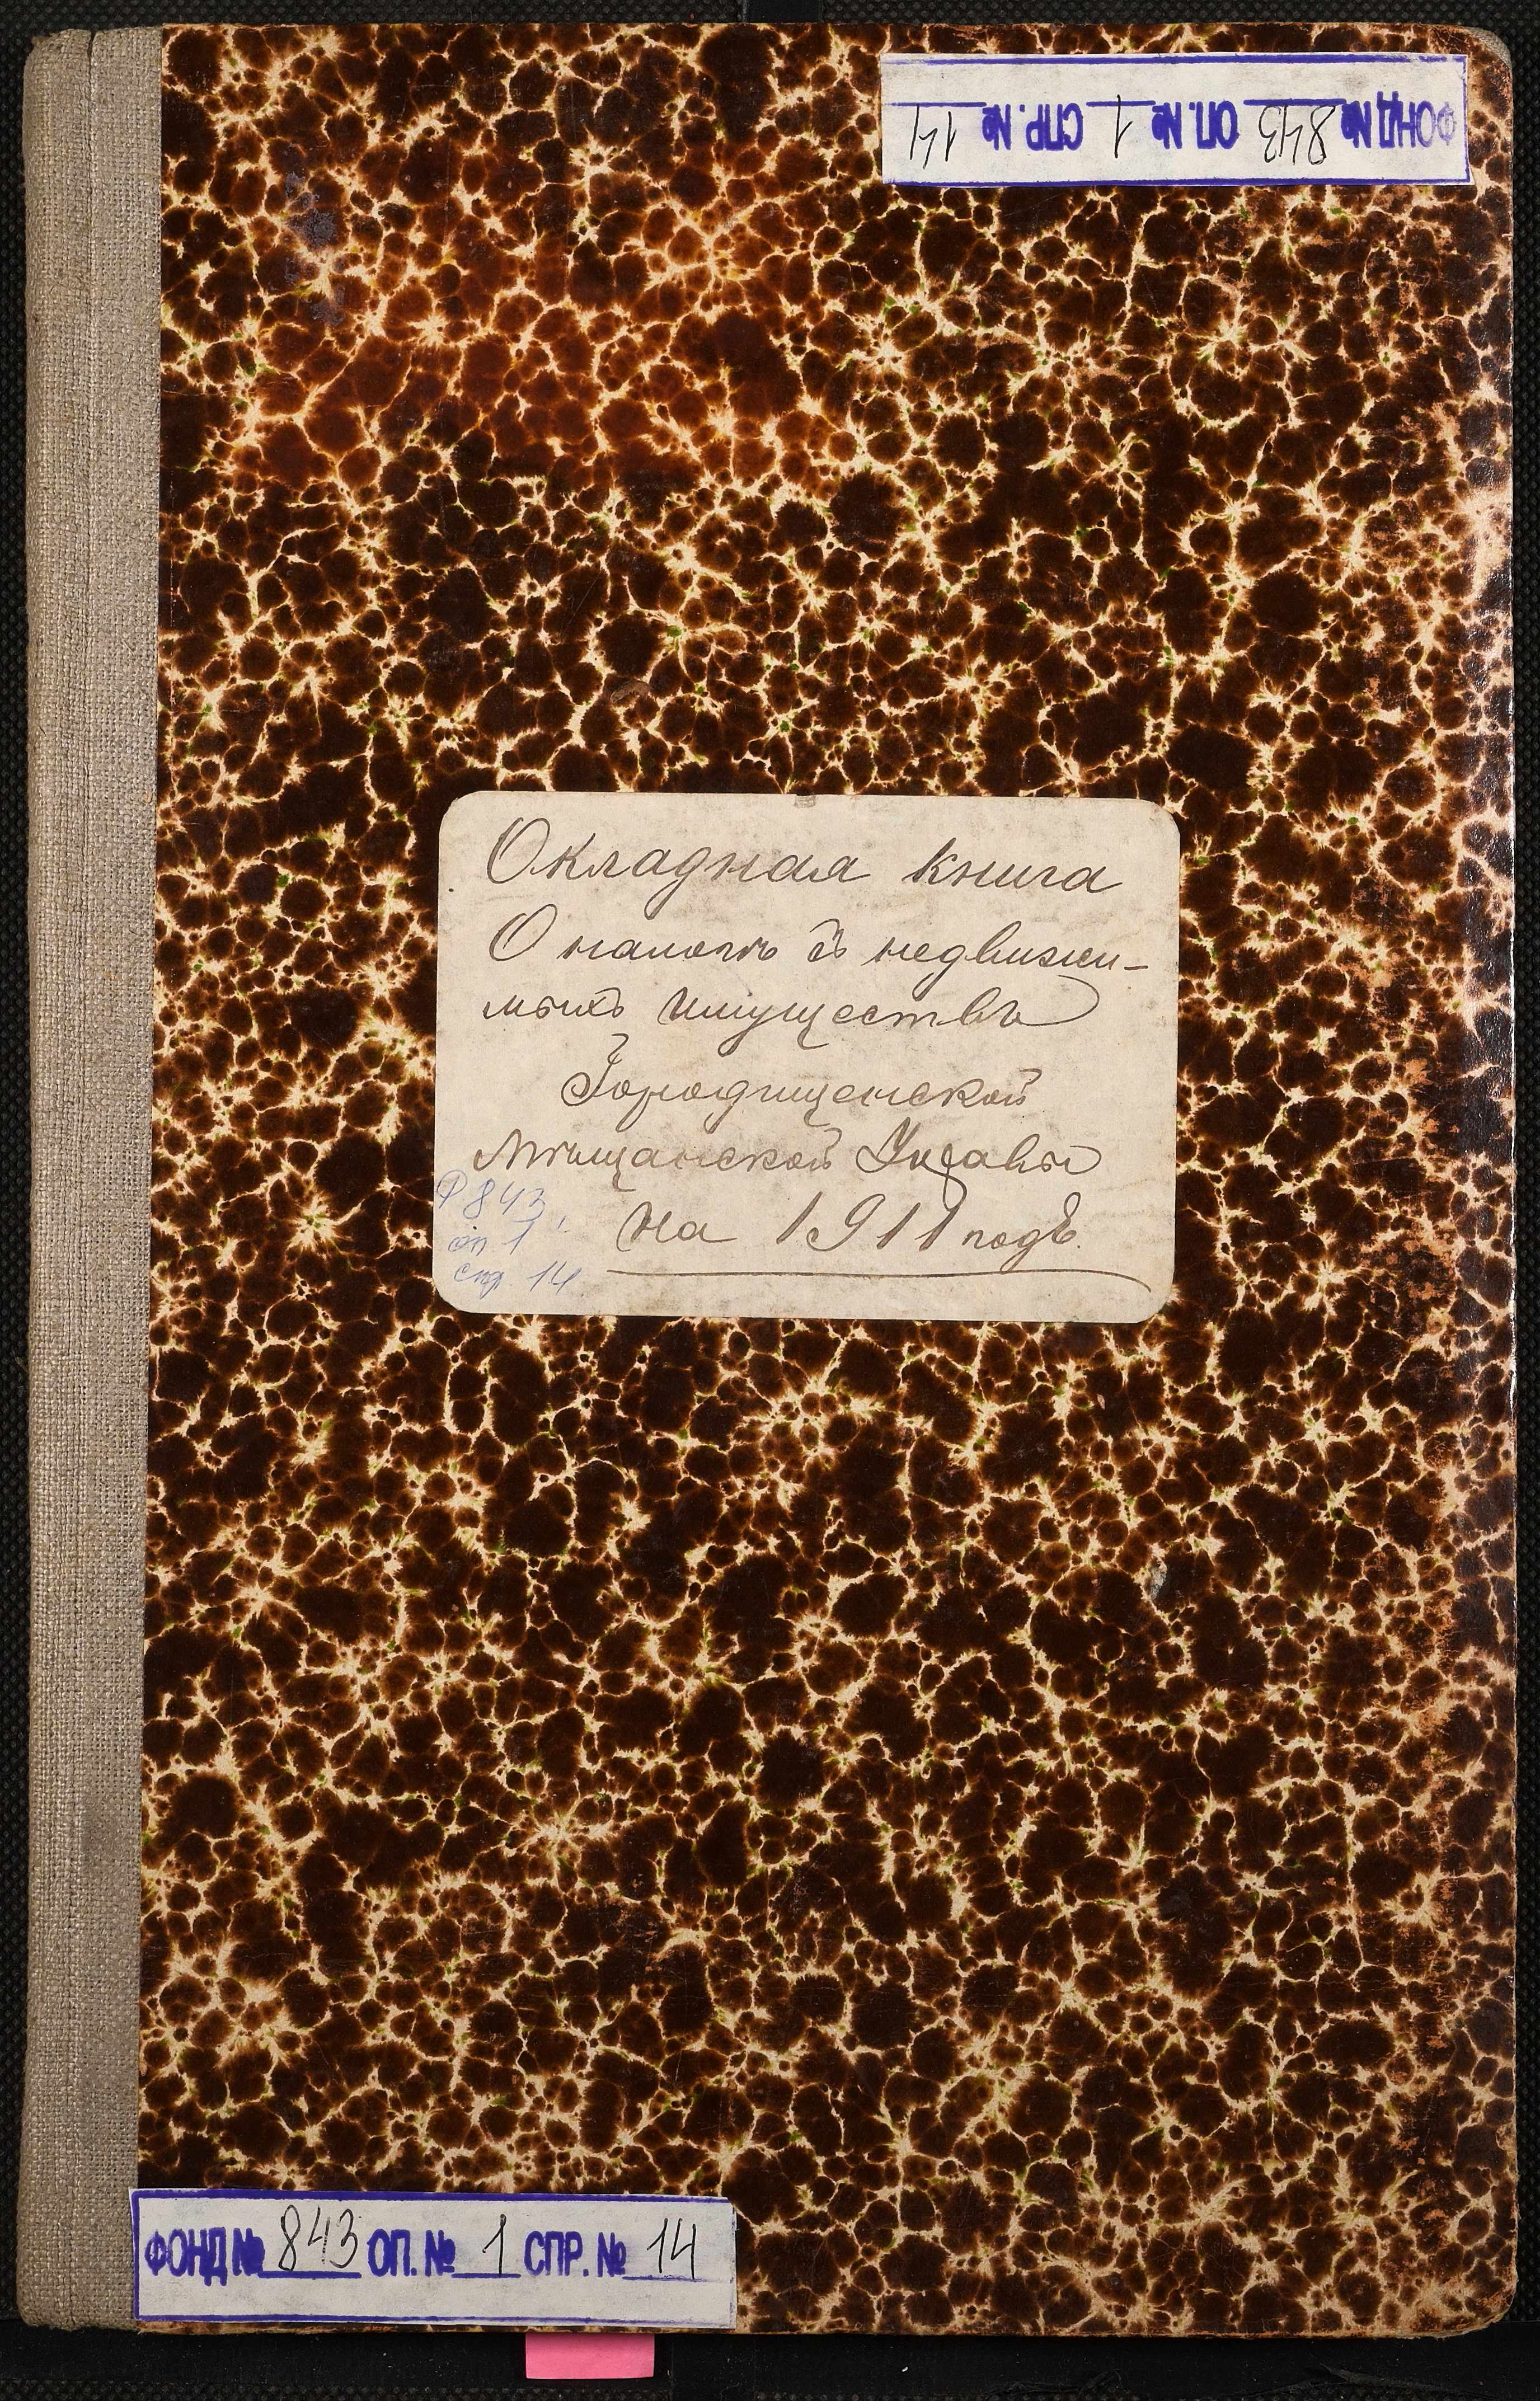 ФОНД № 843 ОП. № 1 СПР. № 14
Окладная книга
О налогѣ съ недвижи-
мыхъ имуществъ
Городищенской
Мѣщанской Управы
на 1911 годъ.
Ф 843,
оп. 1
спр. 14
ФОНД № 843 ОП. № 1 СПР. № 14